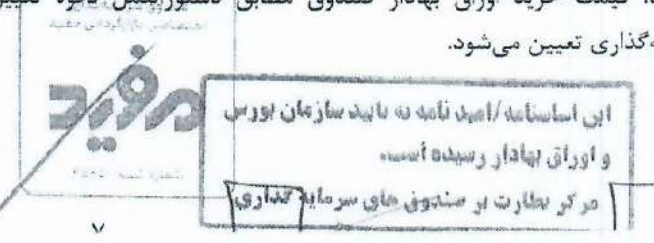 قیمت خرید اوراق بهادار صندوق مطابق دستورالعمل نحوه تعیین
ه‌گذاری تعیین می‌شود.
اختصاصی بازارگردانی مفید
مفید
این اساسنامه/امید نامه به تایید سازمان بورس
و اوراق بهادار رسیده است.
مرکز نظارت بر صندوق های سرمایه گذاری
۷